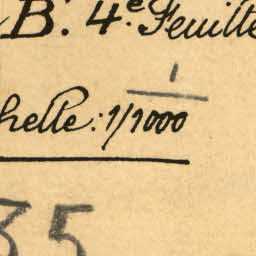 B. 4e. Feuille
helle: 1/1000
35